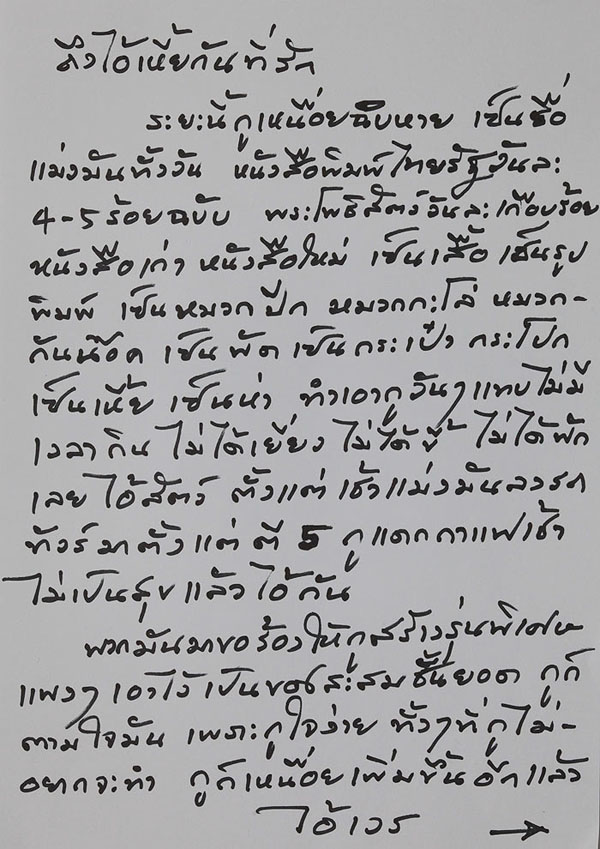 ถึงไอ้เหี้ยกันที่รัก
ระยะนี้กูเหนื่อยฉิบหาย เซ็นชื่อ
แม่งมันทั้งวัน หนังสือพิมพ์ไทยรัฐวันละ
4-5 ร้อยฉบับ พระโพธิสัตว์วันละเกือบร้อย
หนังสือเก่า หนังสือใหม่ เซ็นเสื้อ เซ็นรูป
พิมพ์ เซ็นหมวกปีก หมวกกะโล่ หมวก-
กันน๊อค เซ็นพัด เซ็นกระเป๋า กระโปก
เซ็นเหี้ย เซ็นห่า ทำเอากูวันๆแทบไม่มี
เวลากิน ไม่ได้เยี่ยว ไม่ได้ขี้ ไม่ได้พัก
เลย ไอ้สัตว์ ตั้งแต่เช้าแม่งมันลงรถ
ทัวร์มาตั้งแต่ตี 5 กูแดกกาแฟเช้า
ไม่เป็นสุขแล้วไอ้กัน
พวกมันมาขอร้องให้กูสร้างรุ่นพิเศษ
แพงๆ เอาไว้เป็นของสะสมชั้นยอด กูก็
ตามใจมัน เพราะกูใจง่าย ทั้งๆที่กูไม่-
อยากจะทำ กูก็เหนื่อยเพิ่มขึ้นอีกแล้ว
ไอ้เวร →